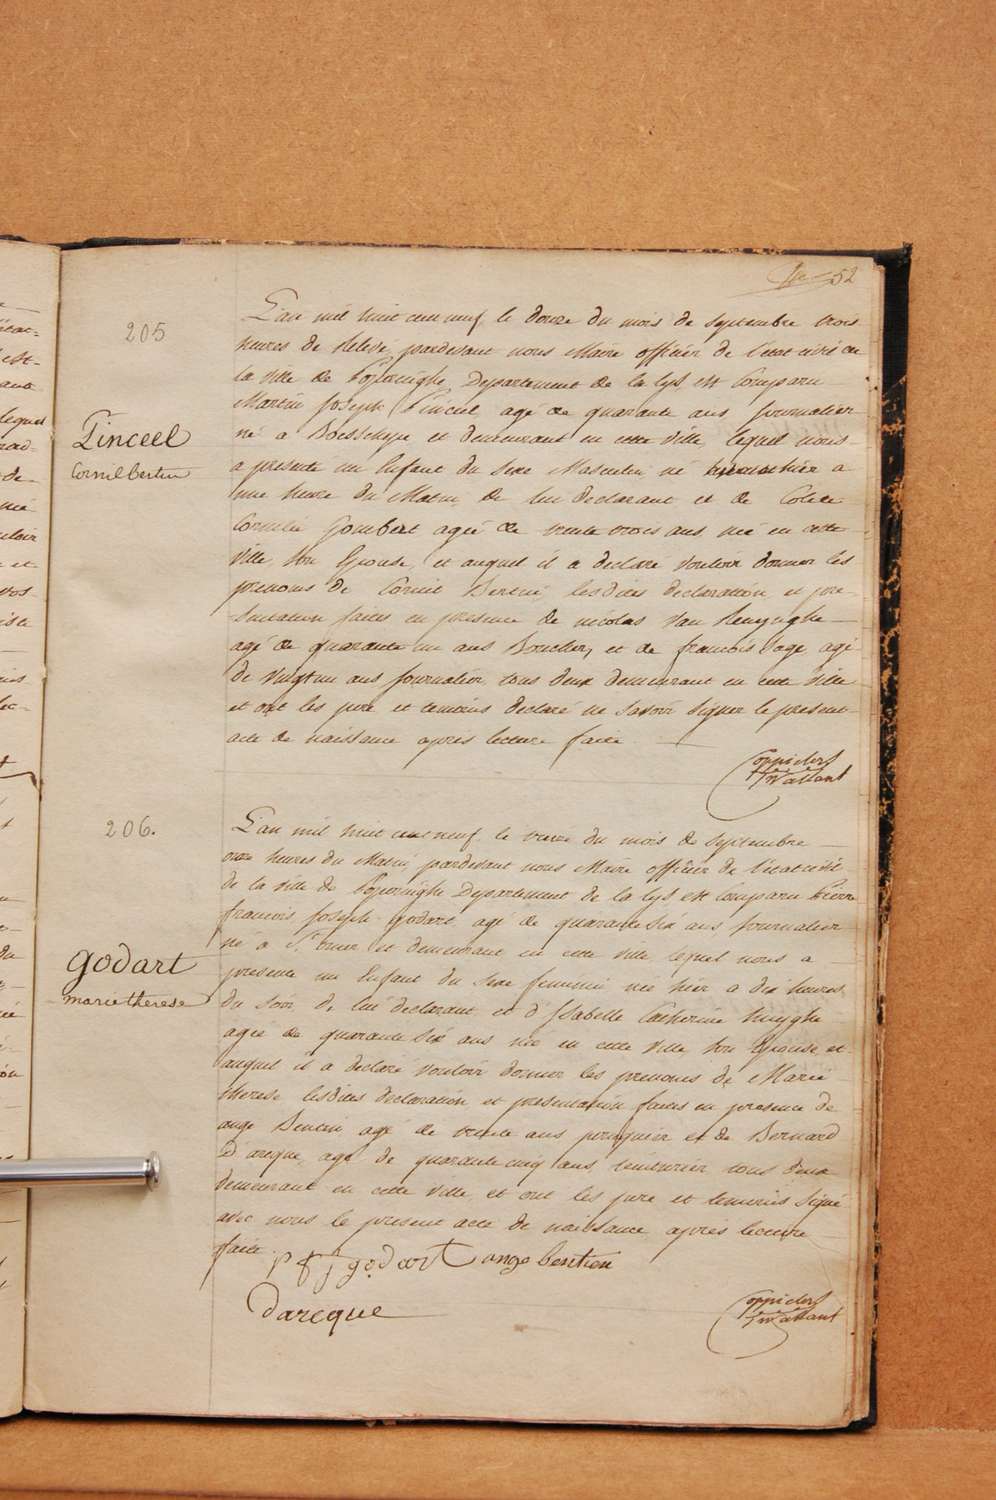 52
205
Pinceel
Cornil bertin
L'an mil huit cent neuf, le douze du mois de septembre trois
heures de relevé, pardevant nous Maire officier de l'état civil de
la ville de Poperinghe, Departement de la Lys, est Comparu
Martin Joseph Pinceel, agé de quarante ans Journalier
né a Boesschepe et demeurant en cette ville, lequel nous
a presenté un Enfant du sexe Masculin, né hier a
une heure du Matin, de lui declarant et de
Cornelie Gombert agée de trente trois ans, née en cette
ville, son Epouse, et auquel il a declaré vouloir donner les
prenoms de Cornil Bertin, lesdites declaration, et pre-
-sentation faites en presence de nicolas Van
agé de quarante un ans Boucher, et de francois sage, agé
de vingt un ans Journalier, tous deux demeurant en cette ville
et ont les pere et temoins declaré ne savoir signer le present
acte de naissance après lecture faite.
206.
godart
marie therese
L'an mil huit cent neuf le treize du mois de septembre
onze heures du Matin, pardevant nous Maire officier de l'état civil
de la ville de Poperinghe Departement de la Lys, est Comparu Pierre
francois Joseph godart, agé de quarante six ans Journalier
né a St. omer et demeurant en cette ville lequel nous a
presenté un Enfant du sexe feminin née hier a dix heures
du soir, de lui declarant et d'Isabelle Catherine
agée de quarante six ans née en cette ville son Epouse, et
auquel il a declaré vouloir donner les prenoms de Marie
therese lesdites declaration et presentation faites en presence de
ange Bentein agé de trente ans perruquier et de Bernard
D'arcque, agé de quarante cinq ans, teinturier tous deux
demeurant en cette ville, et ont les pere et temoins signé
avec nous le present acte de naissance après lecture
faite.
P f J godart ange bentien
Darcque